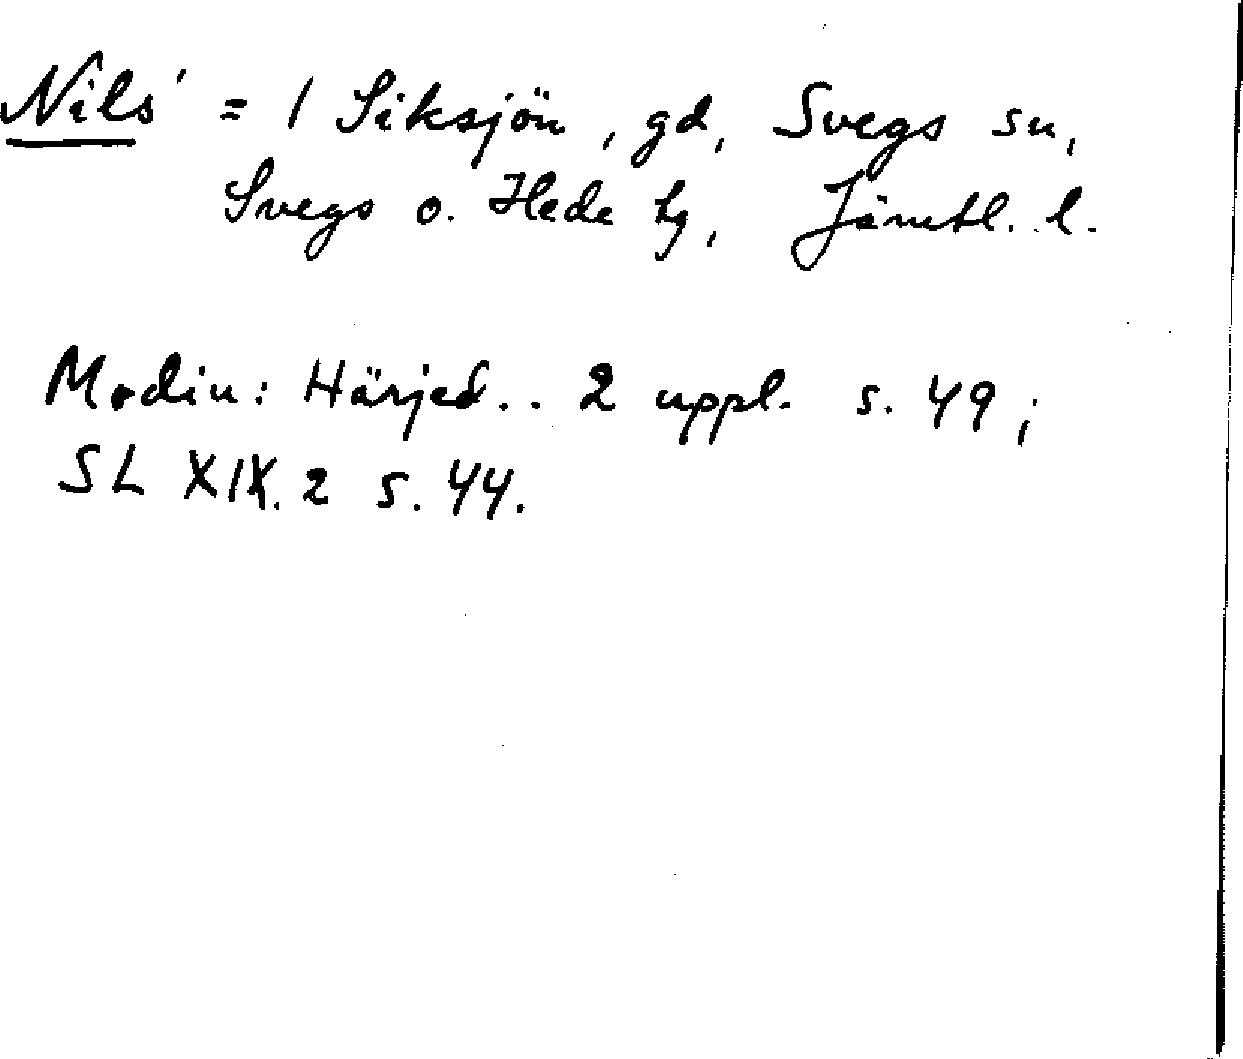 Nils' = 1 Siksjön, gd, Svegs sn,
Svegs o. Hede tg, Jämtl. l.
Modin: Härjed.. 2 uppl. s. 49;
SL XIX. 2 s. 44.